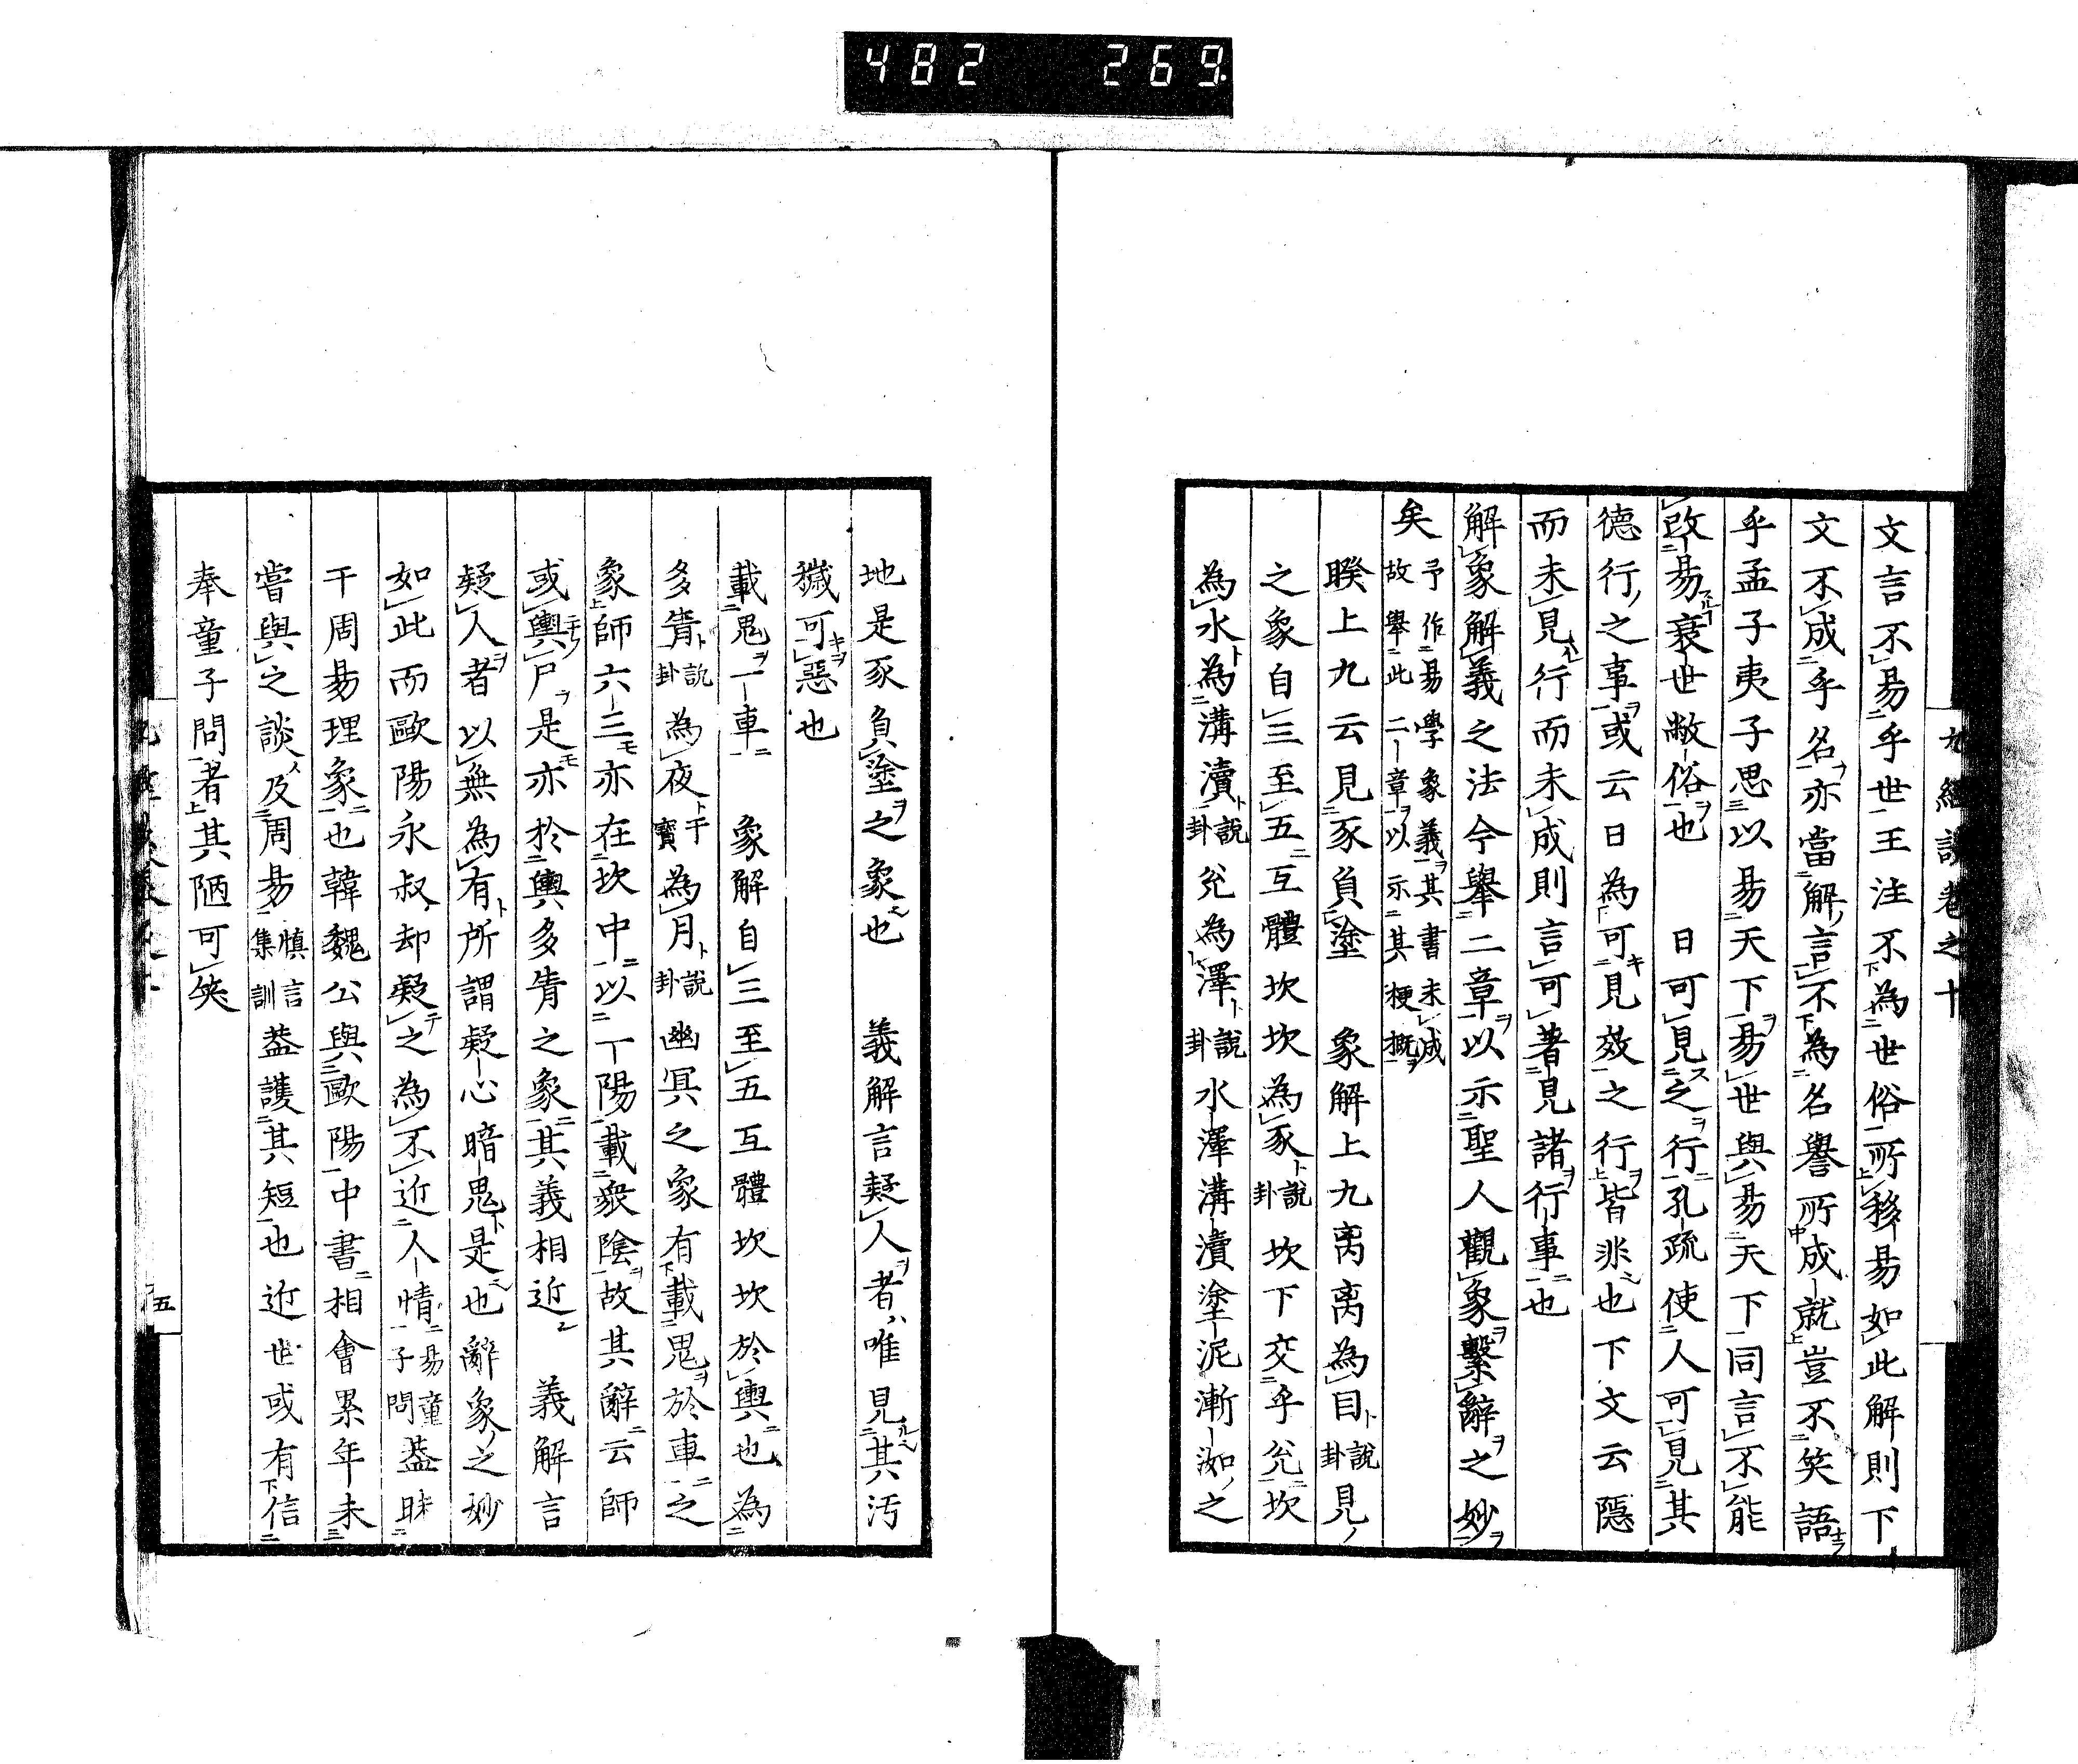 482 269
九經談卷之十
文言不易乎世王注不為世俗所移易如此解則下
文不成乎名亦當解言不為名譽所成就豈不笑語
乎孟子夷子思以易天下易世與易天下同言不能
改易衰世敝俗也　日可見之行孔疏使人可見其
德行之事或云日為可見效之行皆非也下文云隱
而未見行而未成則言可著見諸行事也
解象解義之法今舉二章以示聖人觀象繫辭之妙
矣予作易學象義其書未成故舉此二章以示其梗概
睽上九云見豕負塗　象解上九离离為目說卦見
之象自三至五互體坎坎為豕說卦坎下交乎兌坎
為水為溝瀆說卦兌為澤說卦水澤溝瀆塗泥漸洳之
地是豕負塗之象也　義解言疑人者唯見其汚
穢可惡也
載鬼一車　象解自三至五互體坎坎於輿也為
多眚說卦為夜干寶為月說卦幽冥之象有載鬼於車之
象師六三亦在坎中以一陽載衆陰故其辭云師
或輿尸是亦於輿多眚之象其義相近　義解言
疑人者以無為有所謂疑心暗鬼是也辭象之妙
如此而歐陽永叔却疑之為不近人情易童子問蓋昧
干周易理象也韓魏公與歐陽中書相會累年未
嘗與之談及周易慎言集訓蓋護其短也近世或有信
奉童子問者其陋可笑
五